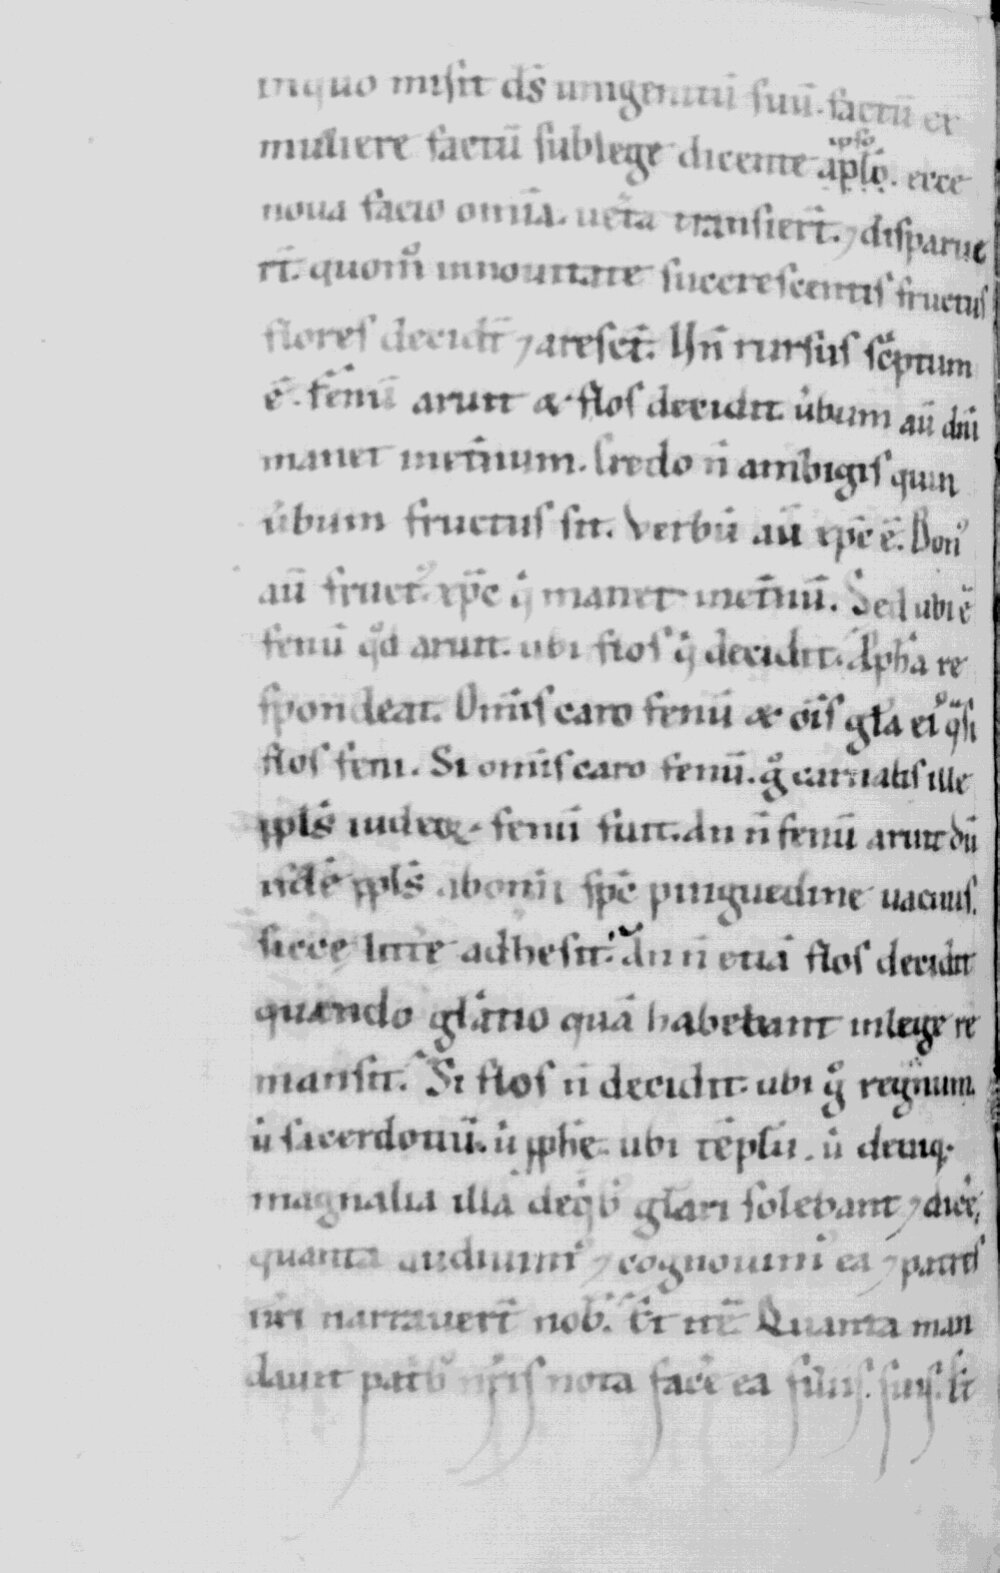 inquo misit dſ̄ unigenitū ſuū. factū ex
muliere factū ſub lege dicente ap̄lo. ipſo ecce
noua facio omīa. uet̄a tranſier̄t. ⁊ diſparue
rt̄. quom̊ innouitate ſuccreſcentis fructus
floreſ decidt̄ ⁊ areſct̄. Vn̄ rurſus ſc̄ptum
ē. fenū aruit & floſ decidit. u̾bum aū dn̄i
manet inet̄num. Credo n̄ ambigiſ quin
u̾bum fructuſ ſit. Verbū aū xp̄c ē. Bon᾽
aū fruct᾽ xp̄c q̇ manet inet̄nū. Sed ubi ē
fenū qd̄ aruit. ubi floſ q̇ decidit. ꝓph̄a re
ſpondeat. Om̄iſ caro fenū & oīſ gl̄a ei᾽ q̄ſi
floſ feni. Si om̄iſ caro fenū. g̊ carnaliſ ille
ppl̄ſ iudeoꝝ fenū fuit. an n̄ fenū aruit dū
idē ppl̄ſ abomī ſp̄c pinguedine uacuuſ.
ſicce litt̄e adheſit. An n̄ etiā floſ decidit
quando gl̄atio quā habebant in lege re
manſit. Si floſ n̄ decidit. ubi g̊ regnum.
u̇ ſacerdotiū. u̇ ꝓph̄e. ubi tēplū. u̇ deniq;
magnalia illa deqb᾽ gl̄ari ſolebant ⁊ dice̾,
quanta audiuim᾽ ⁊ cognouim᾽ ea ⁊ patreſ
nr̄i narrauert̄ nob̄. Et itē. Quanta man
dauit patib᾽ nr̄iſ nota face̾ ea filiiſ. ſuiſ. ſi